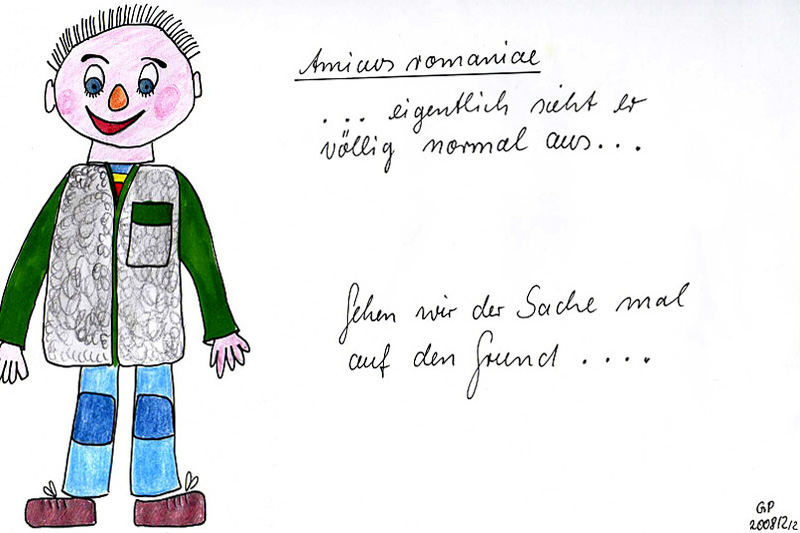 Amicus romaniae
... eigentlich sieht er
völlig normal aus...
Gehen wir der Sache mal
auf den Grund ....
GP
2008/2/2